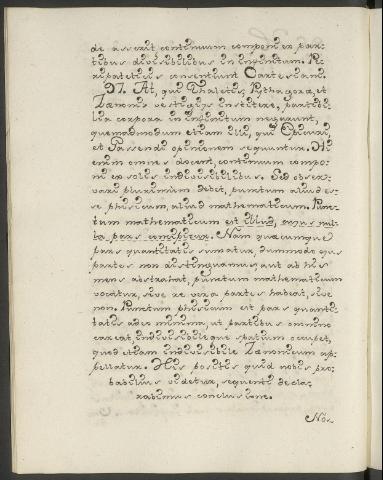 de asserit continuum componi ex par-
tibus divisibilibus in infinitum. Pe-
ripateticis consentiunt Cartesiani.
97. At, qui Thaletis, Pythagoræ, et
Zenonis vestigiis institere, partibi-
lia corpora in infinitum negarunt,
quemadmodum etiam illi, qui Epicuri,
et Gassendi opinionem sequuntur. Hi
enim omnes docent, continuum compo-
ni ex solis indivisibilibus. Sed obser-
vari plurimum debet, punctum aliud es-
se physicum, aliud mathematicum. Punc-
tum mathematicum est illud, cujus nul-
la pars concipitur. Nam quæcumque
pars quantitatis sumatur, dummodo ejus
partes non distinguamus, aut ab his
mens abstrahat, punctum mathematicum
vocatur, sive re vera partes habeat, sive
non. Punctum physicum est pars quanti-
tatis adeo minima, ut partibus omnino
careat, indivisibileque spatium occupet,
quod etiam indivisibile Zenonicum ap-
pellatur. His positis quid nobis pro-
babilius videtur, sequenti decla-
rabimus conclusione.